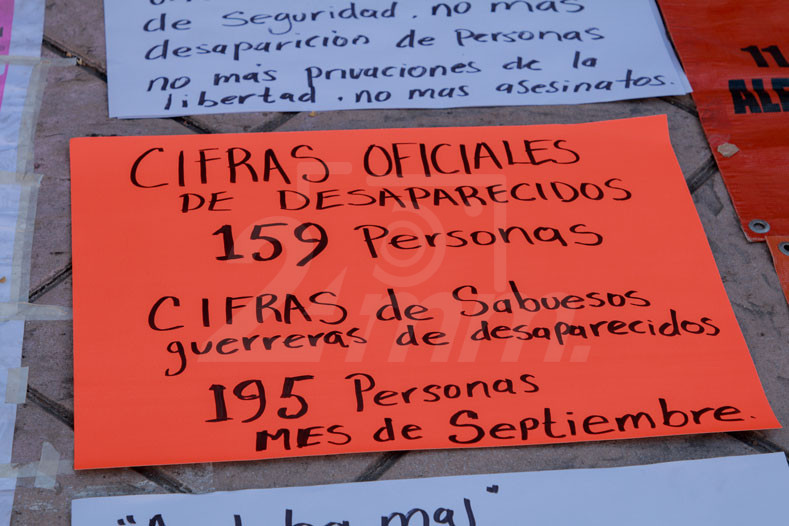 de Seguridad. no mas
desaparición de Personas
no más privaciones de la
libertad. no mas asesinatos.
11
CIFRAS OFICIALES
DE DESAPARECIDOS
159 Personas
CIFRAS de Sabuesos
guerreras de desaparecidos
195 Personas
MES de Septiembre.
24mm.
mal"